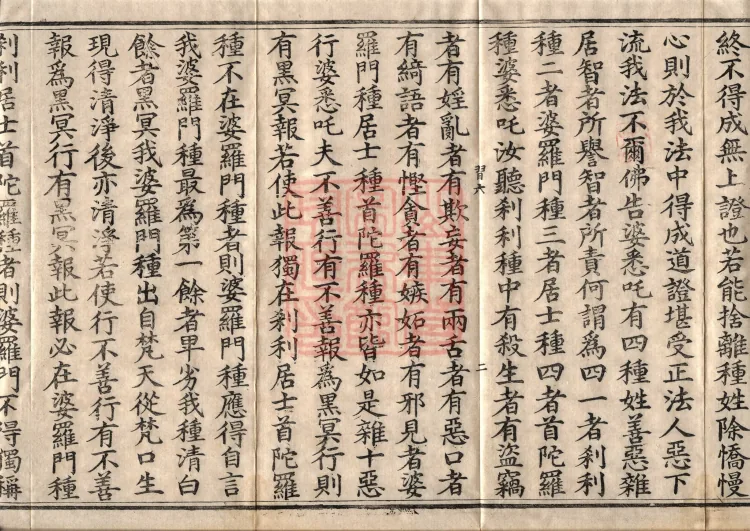 終不得成無上證也若能捨離種姓除憍慢
心則於我法中得成道證堪受正法人惡下
流我法不爾佛告婆悉吒有四種姓善惡雜
居智者所譽智者所責何謂為四一者剎利
種二者婆羅門種三者居士種四者首陀羅
種婆悉吒汝聽剎利種中有殺生者有盜竊
習六
二
者有婬亂者有欺妄者有兩舌者有惡口者
有綺語者有慳貪者有嫉妬者有邪見者婆
羅門種居士種首陀羅種亦皆如是雜十惡
行婆悉吒夫不善行有不善報為黑冥行則
有黑冥報若使此報獨在剎利居士首陀羅
種不在婆羅門種者則婆羅門種應得自言
我婆羅門種最為第一餘者卑劣我種清白
餘者黑冥我婆羅門種出自梵天從梵口生
現得清淨後亦清淨若使行不善行有不善
報為黑冥行有黑冥報此報必在婆羅門種
剎利居士首陀羅種者則婆羅門不得獨稱